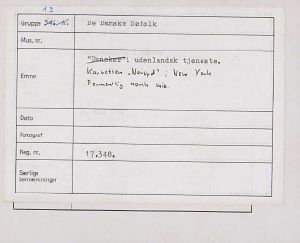 10
Gruppe De Danske Søfolk
Mus. nr.
Emne "Dansker" i udenlandsk tjeneste.
Korvetten i New York
Formentlig norsk
Dato
Fotograf
Neg. nr. 17.348.
Særlige
bemærkninger